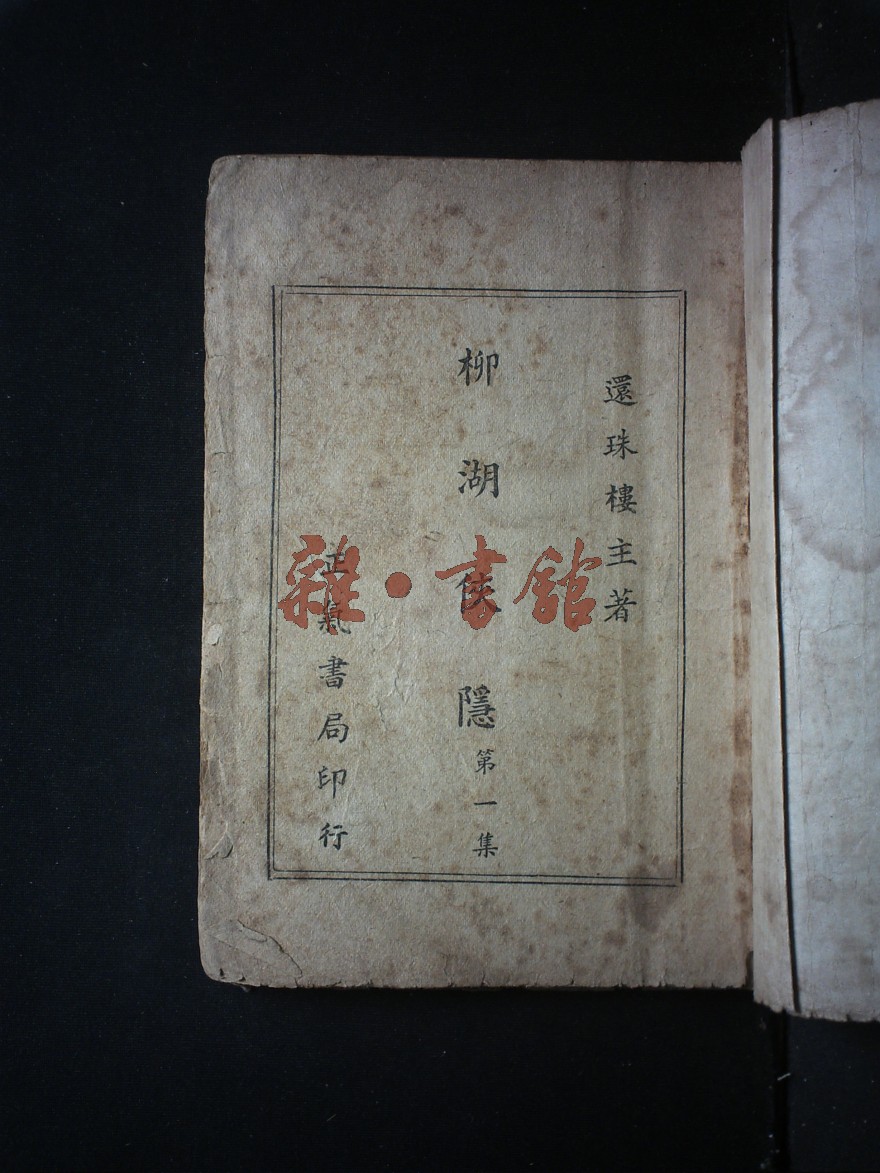 還珠樓主著
柳湖俠隱
第一集
正氣書局印行
雜·書館